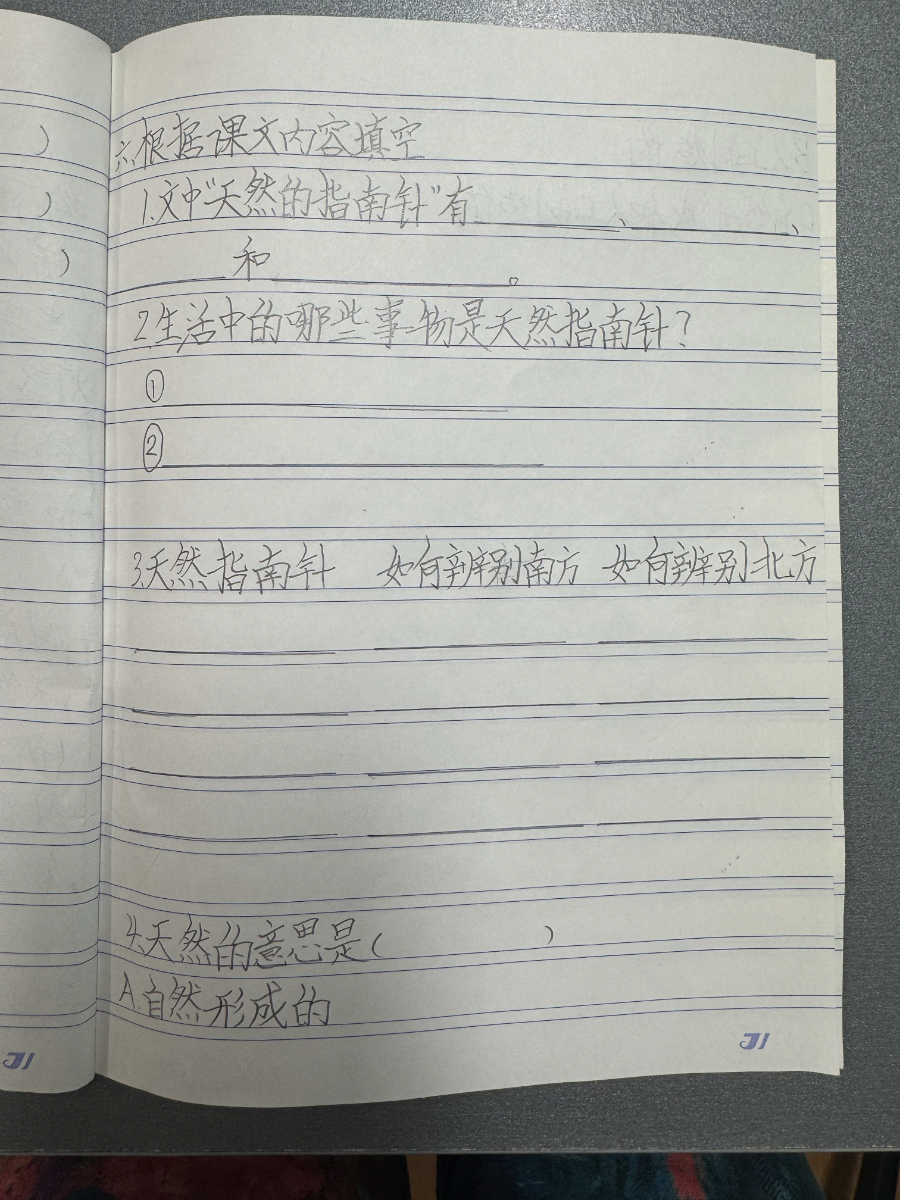 六、根据课文内容填空
1.文中"天然的指南针"有______、______、
______和______。
2.生活中的哪些事物是天然指南针?
①______
②______
3.天然指南针 如何辨别南方 如何辨别北方
4.天然的意思是( )
A.自然形成的
)
)
)